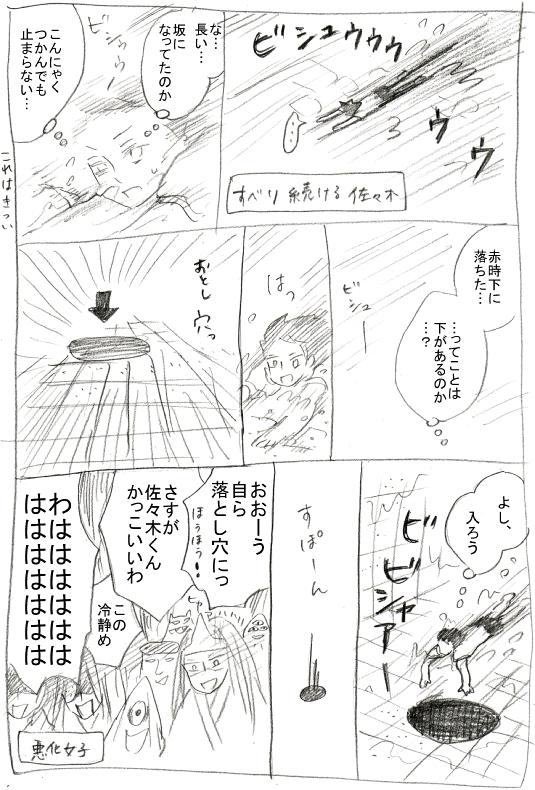 ビシュウゥゥ
ウ
ウ
すべり続ける佐々木
な…
長い…
坂に
なってたのか
ビシュウゥー
こんにゃく
つかんでも
止まらない…
これはきつい
赤時下に
落ちた…
…ってことは
下があるのか
…?
ビシュー
はっ
おとし穴っ
よし、
入ろう
ビビシャアー
すぽーん
おおーう
自ら
落とし穴にっ
ほうほう!
さすが
佐々木くん
かっこいいわ
この
冷静め
わはははははは
はははははは
悪化女子